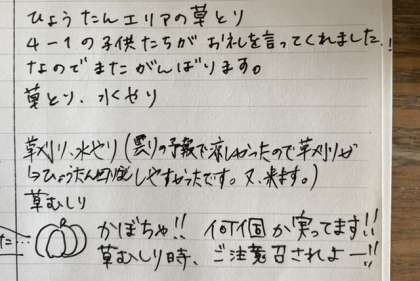 ひょうたんエリアの草とり
4-1の子供たちがお礼を言ってくれました!
なのでまたがんばります。
草とり、水くやり
草刈り、水やり(曇りの予報で涼しかったので草刈りが
↳ひょうたん周辺 しやすかったです。又、来ます。)
草むしり
た…
かぼちゃ!! 何個か実ってます!!
草むしり時、ご注意召されよー!!